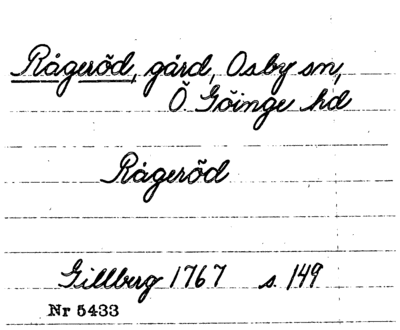 Rågeröd, gård, Osby sn,
Ö Göinge hd
Rågeröd
Gillberg 1767 s. 149
Nr 5433